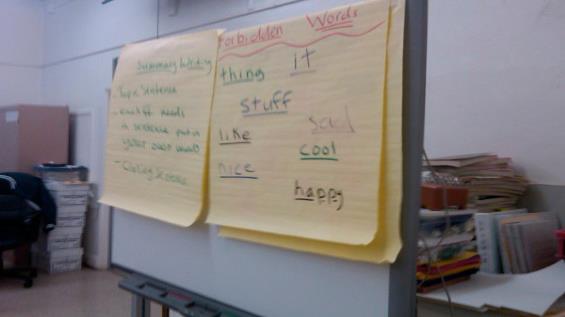 Summary Writing
Topic Sentence
in sentence put in
your own words
- Closing Sentence
Forbidden Words
thing it
stuff
like sad
nice cool
happy